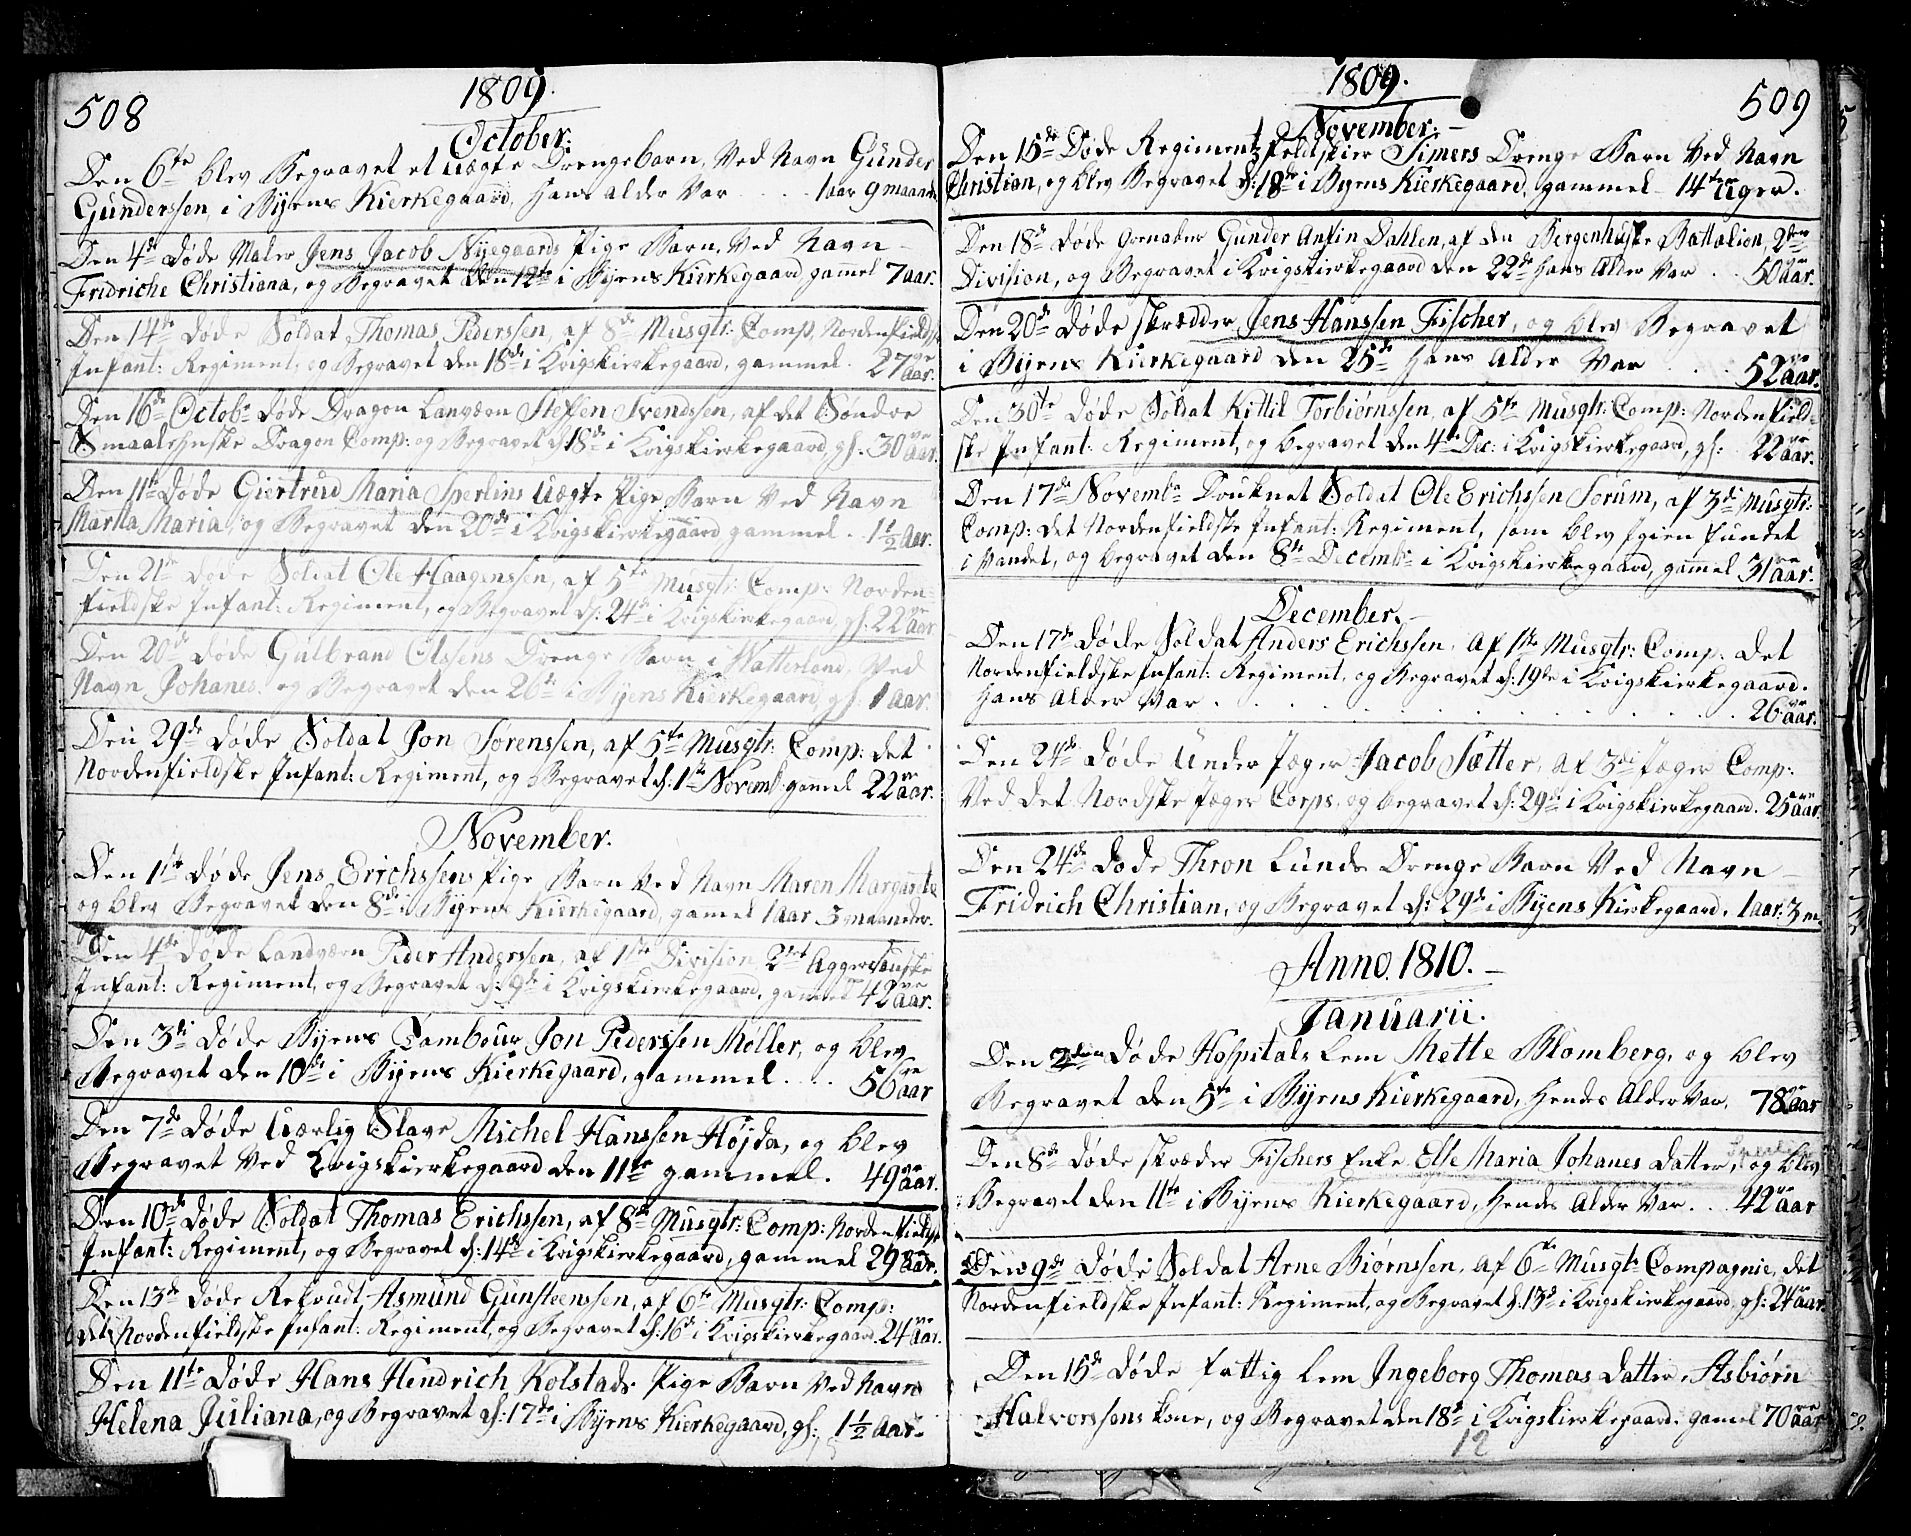 508
1809.
October.
Den 6te blev Begravet et Uægte Drengebarn, Ved Navn Gunder
Gunderssen, i Byens Kierkegaard, hans alder Var . . . 1 aar 9 maaneder
Den 4de døde Maler Jens Jacob Nyegaards Pige Barn, Ved Navn
Fridriche Christiana, og Begravet den 12te i Byens Kierkegaard, gamel 7 aar.
Den 14de døde Soldat Thomas Pederssen, af 8de Musqtr: Comp, Nordenfieldske
Infant: Regiment, og Begravet den 18de i Krigskierkegaard, gammel. 27ve aar.
Den 16de Octobr døde Dragon Landværn Steffen Svendssen, af det Søndre
Smaalehnske Dragon Comp: og Begravet d: 18de i Krigskierkegaard, gl: 30ve aar.
Den 11te døde Giertrud Maria Sperlins Uægte Pige Barn Ved Navn
Martha Maria, og Begravet den 20de i Krigskierkegaard gammel . 1½ Aar.
Den 21de døde Soldat Ole Haagenssen, af 5te Musqtr: Comp: Norden-
fieldske Infant: Regiment, og Begravet d: 24de i Krigskierkegaard, gl: 22ve aar
Den 20de døde Gulbrand Olssens Drenge Barn i Watterland, Ved
Navn Johanes, og Begravet den 26te i Byens Kierkegaard, gl: 1 aar.
Den 29de døde Soldat Jon Sørenssen, af 5te Musqtr: Comp: det
Nordenfieldske Infant: Regiment, og Begravet d: 1ste Novemb. gamel 22ve aar.
November.
Den 1ste døde Jens Erichssens Pige Barn Ved Navn Maren Margrete
og blev Begravet den 8de i Byens Kierkegaard, gamel 1 aar 3 maaneder.
Den 4de døde Landværn Peder Anderssen, af 1ste Division 2det Aggershuuske
Infant: Regiment, og Begravet d: 9de i Krigskierkegaard, gammel 42ve aar.
Den 3di døde Byens Tambour Jon Pederssen Møller, og blev
Begravet den 10de i Byens Kierkegaard, gammel . . . . 56ve aar
Den 7de døde Uærlig Slave Michel Hanssen Højda, og blev
Begravet Ved Krigskierkegaard den 11te gammel. 49ve aar.
Den 10de døde Soldat Thomas Erichssen, af 8de Musqtr: Comp: Nordenfieldske
Infant: Regiment, og Begravet d: 14de i Krigskierkegaard, gammel 29ve aar.
Den 13de døde Rekrudt Asmund Gunsteenssen, af 6te Musqtr: Comp:
det Nordenfieldske Infant: Regiment, og Begravet d: 16de i Krigskierkegaard. 24ve aar.
Den 11te døde Hans Hendrich Kolstads Pige Barn Ved Navn
Helena Juliana, og Begravet d: 17de i Byens Kierkegaard, gl: 1½ Aar.
1809.
509
November.
Den 15de Døde Regiments feldskier Simers Drenge Barn Ved Navn
Christian, og blev Begravet d: 18de i Byens Kierkegaard, gammel 14ten Uger.
Den 18de døde Grenader Gunder Anfin Dahlen, af den Bergenhuske Battalion, 2den
Division, og Begravet i Krigskierkegaard den 22de hans Alder Var . . 50ve aar.
Den 20de døde skrædder Jens Hanssen Fischer, og blev Begravet
i Byens Kierkegaard den 25de hans Alder Var . . . 52ve aar.
Den 30te døde Soldat Kittil Torbiørnssen, af 5te Musqtr: Comp: Nordenfield-
ske Infant: Regiment, og begravet den 4de Dec: i Krigskierkegaard, gl: 22ve aar.
Den 17de Novembr Druknet Soldat Ole Erichssen Sorum, af 3di Musqtr:
Comp: det Nordenfieldske Infant: Regiment, som blev Igien fundet
i Vandet, og begravet den 8de Decembr i Krigskierkegaard, gamel 31ve aar.
December.
Den 17de døde Soldat Anders Erichssen, af 1ste Musqtr: Comp: det
Nordenfieldske Infant: Regiment, og Begravet d: 19de i Krigskierkegaard.
hans Alder Var . . . . . . . . . . 26ve aar.
Den 24de døde Under Jæger Jacob Sætter, af 3di Jæger Comp:
Ved det Nordske Jæger Corps, og begravet d: 29de i Krigskierkegaard. 25ve aar.
Den 24de døde Thron Lunds Drenge Barn Ved Navn
Fridrich Christian, og Begravet d: 29de i Byens Kirkegaard. 1 aar. 3 m.
Anno. 1810.
Januarii.
Den 2den døde Hospitals Lem Mette Blomberg, og blev
Begravet den 5te i Byens Kierkegaard, hendes Alder Var, 78ve aar
Den 8de døde skræder Fischers Enke Elle Maria Johanes datter, og blev
Begravet den 11te i Byens Kierkegaard, hendes Alder Var . . 42ve aar
Den 9de døde Soldat Arne Biørnssen, af 6te Musqtr Compagnie, det
Nordenfieldske Infant: Regiment, og Begravet d: 13de i Krigskierkegaard, gl: 24ve aar.
Den 15de døde fattig Lem Ingeborg Thomas datter, Asbiørn
Halvorssens kone, og Begravet den 18de i Krigskierkegaard. gamel 70ve aar
12